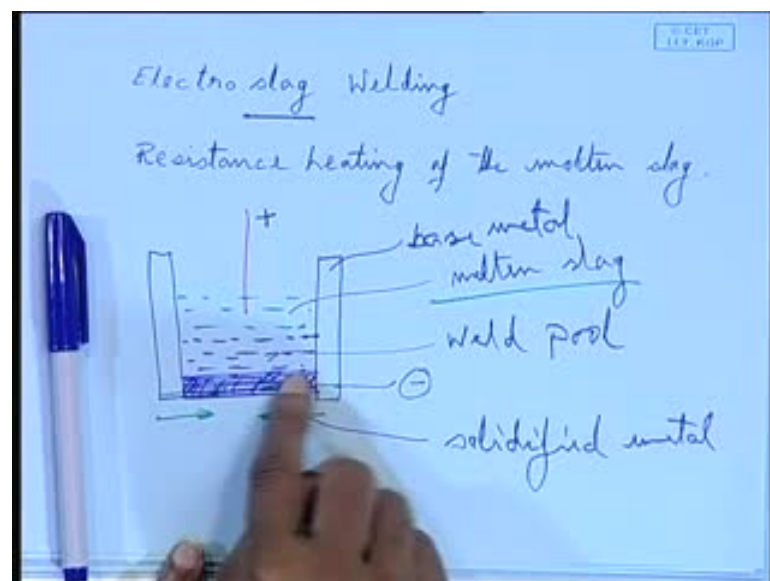 © CET
I.I.T. KGP
Electro slag Welding
Resistance heating of the molten slag.
+
base metal
molten slag
weld pool
-
solidified metal